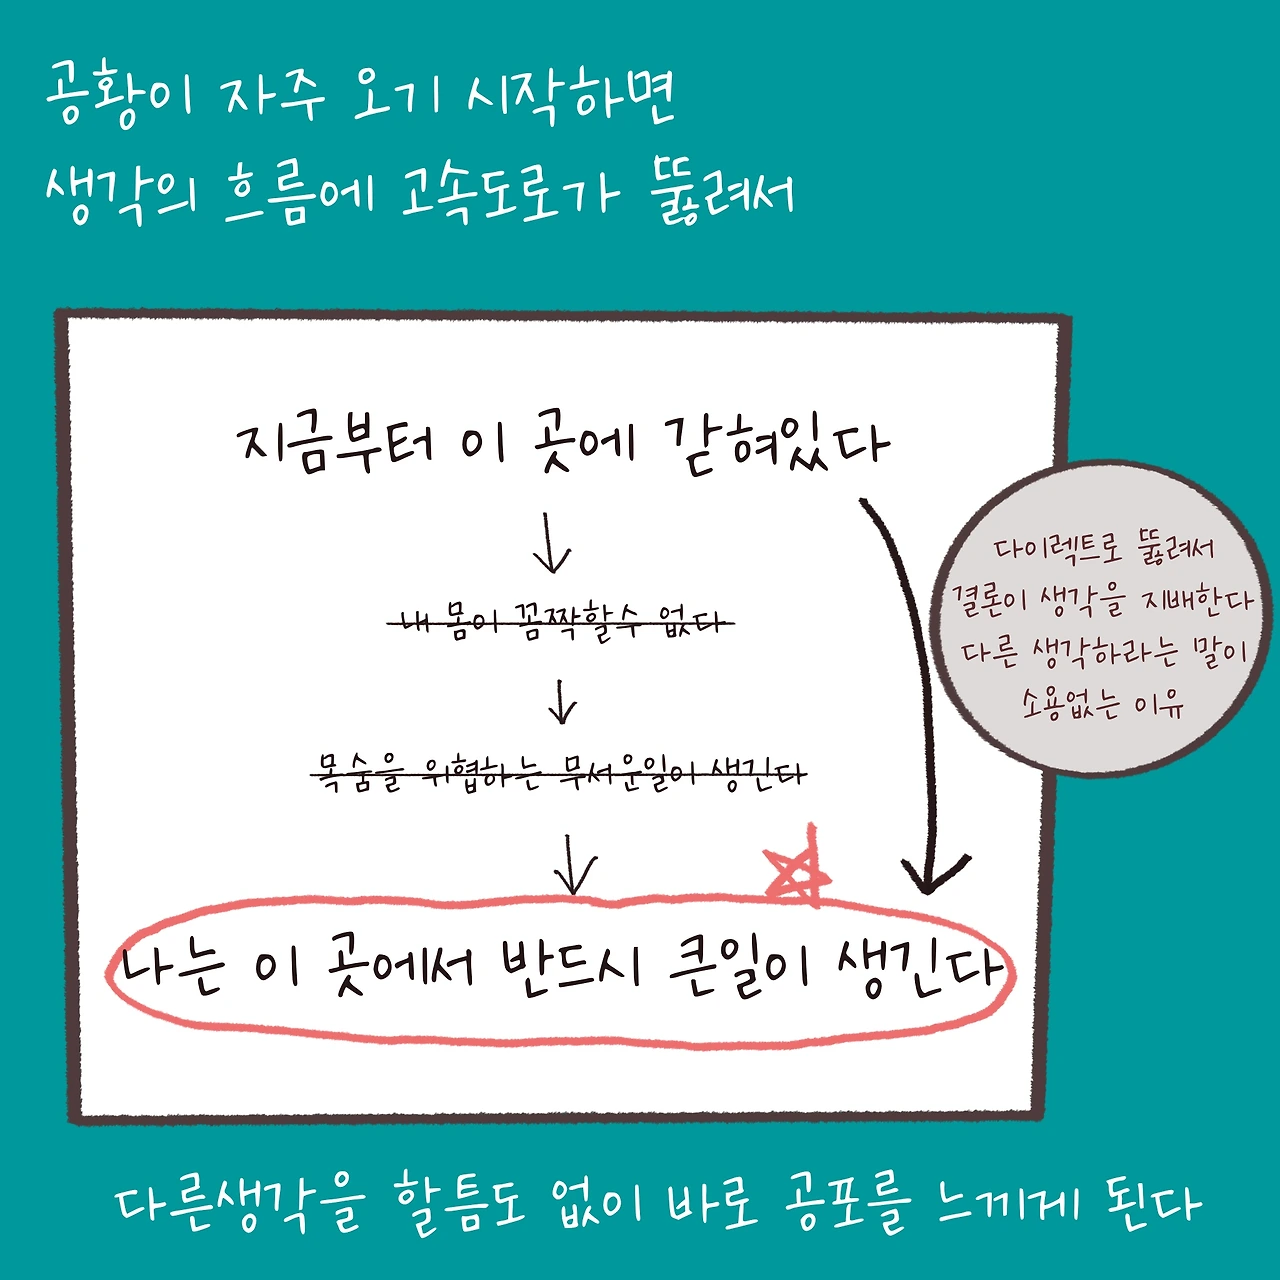 공황이 자주 오기 시작하면
생각의 흐름에 고속도로가 뚫려서
지금부터 이 곳에 갇혀있다
내 몸이 꼼짝할수 없다
목숨을 위협하는 무서운일이 생긴다
나는 이 곳에서 반드시 큰일이 생긴다
다이렉트로 뚫려서
결론이 생각을 지배한다
다른 생각하라는 말이
소용없는 이유
다른생각을 할틈도 없이 바로 공포를 느끼게 된다